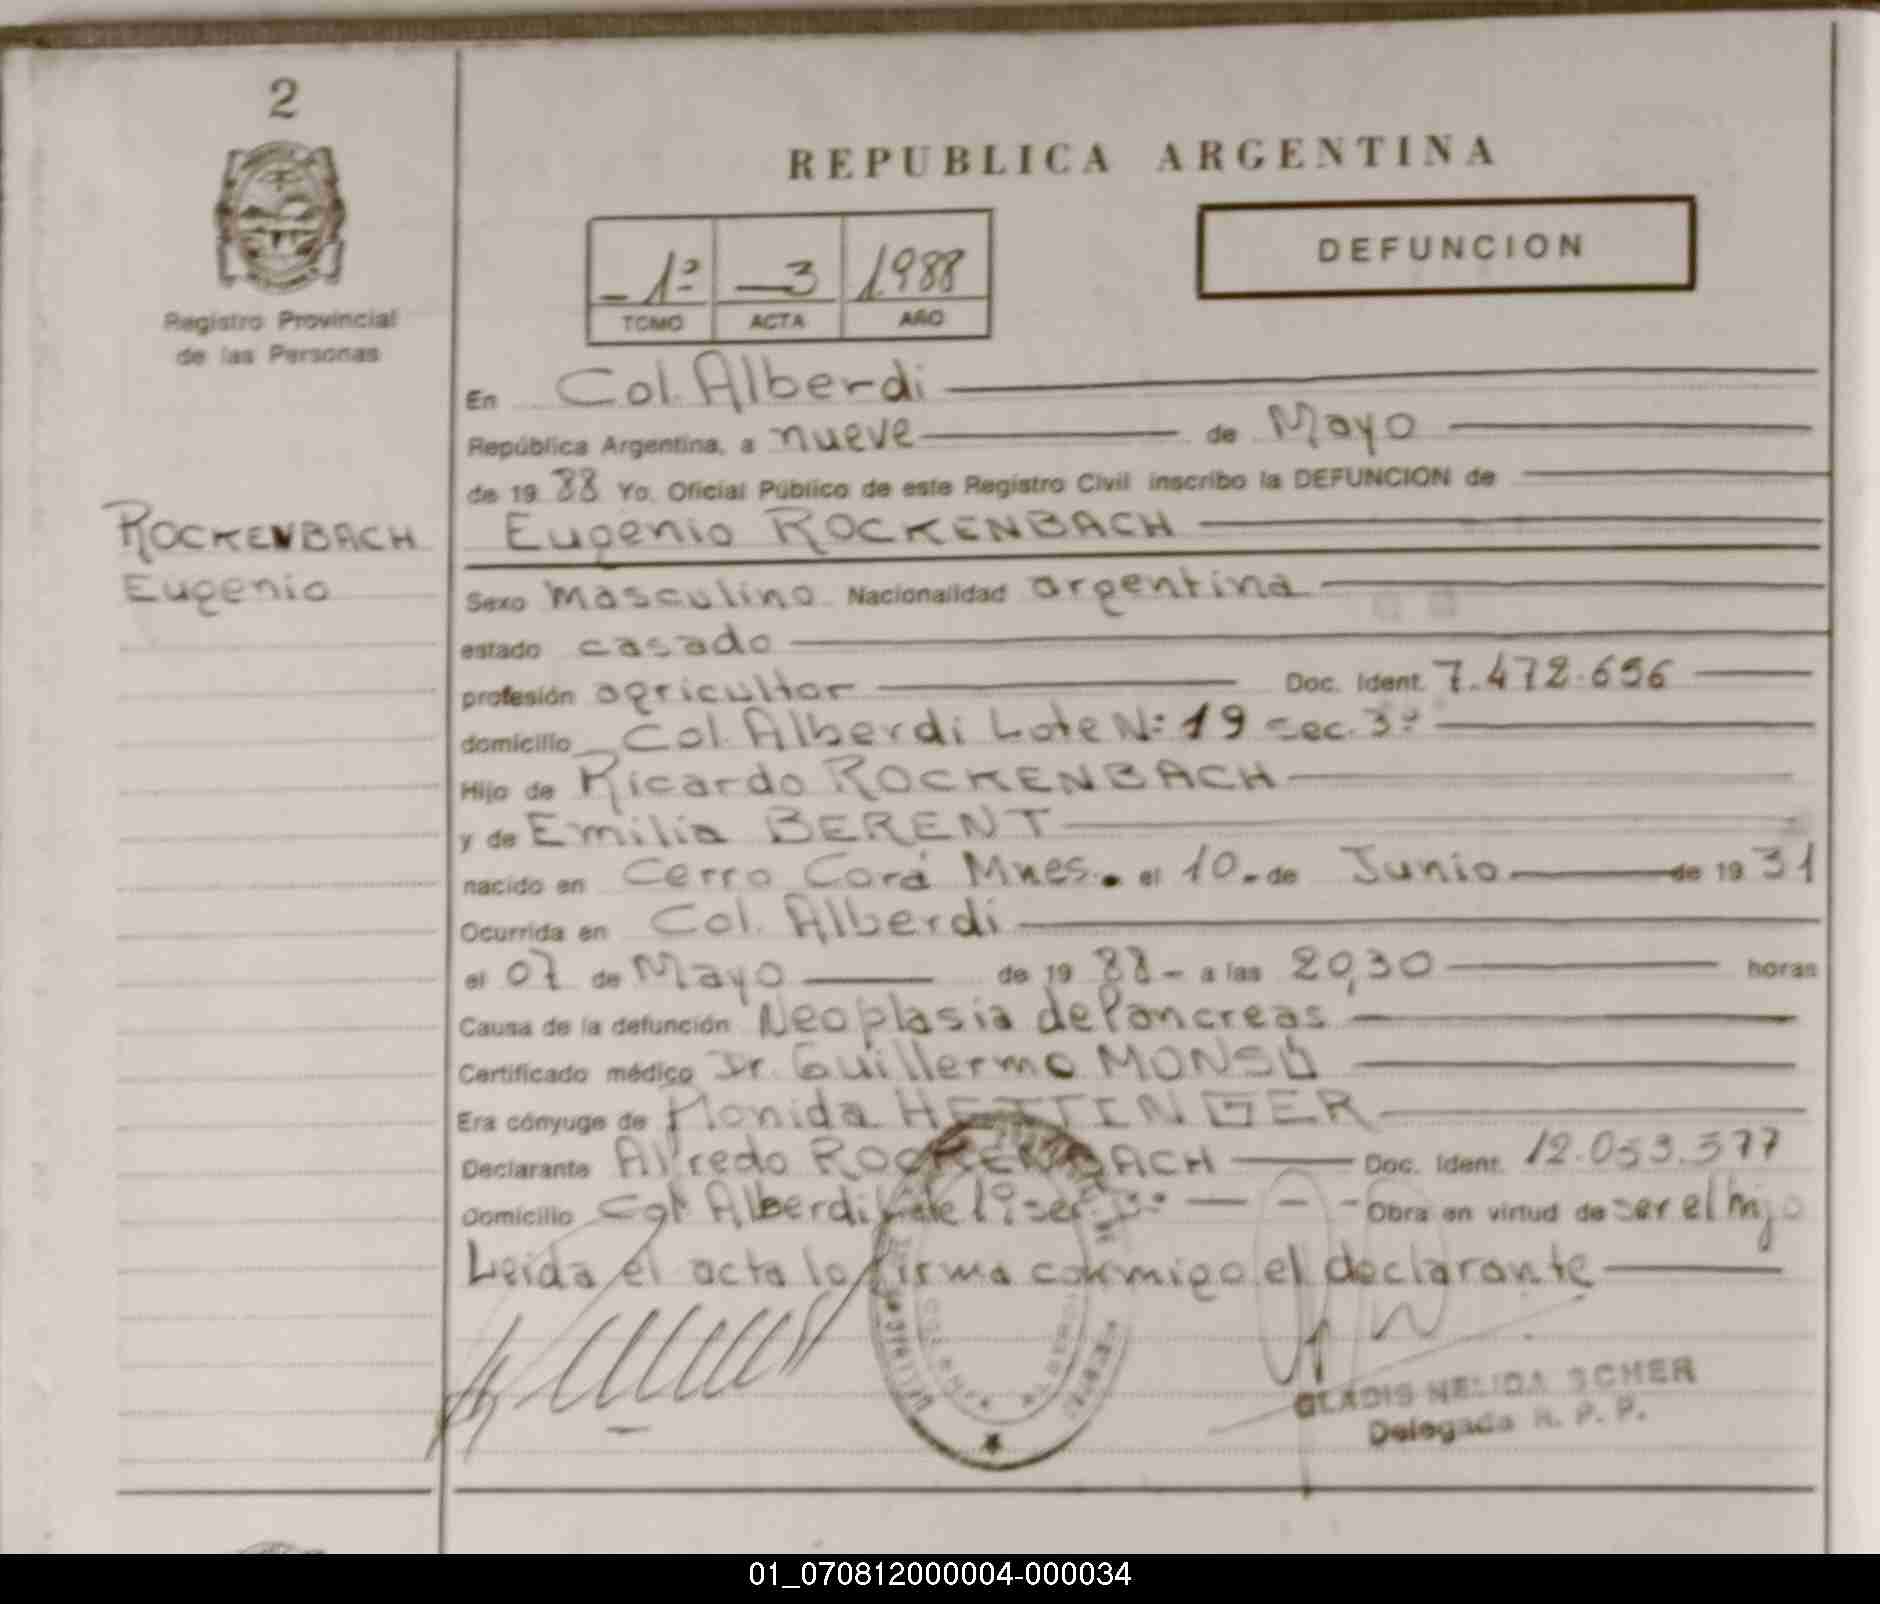 2
REPUBLICA ARGENTINA
DEFUNCION
1º 3 1988
TOMO ACTA AÑO
Registro Provincial
de las Personas
En Col. Alberdi
República Argentina, a nueve de Mayo
de 19 88 Yo. Oficial Público de este Registro Civil inscribo la DEFUNCION de
ROCKENBACH
Eugenio
Eugenio ROCKENBACH
Sexo masculino Nacionalidad argentina
estado casado
profesión agricultor Doc. Ident. 7.472.656
domicilio Col. Alberdi Lote Nº 19 sec. 3º
Hijo de Ricardo ROCKENBACH
y de Emilia BERENT
nacido en Cerro Corá Mnes. el 10 de Junio de 19 31
Ocurrida en Col. Alberdi
el 07 de Mayo de 19 88 a las 20,30 horas
Causa de la defunción Neoplasia de Pancreas
Certificado médico Dr. Guillermo MONSÚ
Era cónyuge de Monida HETTINGER
Declarante Alfredo ROCKENBACH Doc. Ident. 12.053.577
Domicilio Col Alberdi Lote 19 sec. 3º Obra en virtud de ser el hijo
Leida el acta la firma conmigo el declarante
GLADIS NELIDA SCHER
Delegada R. P. P.
01_070812000004-000034